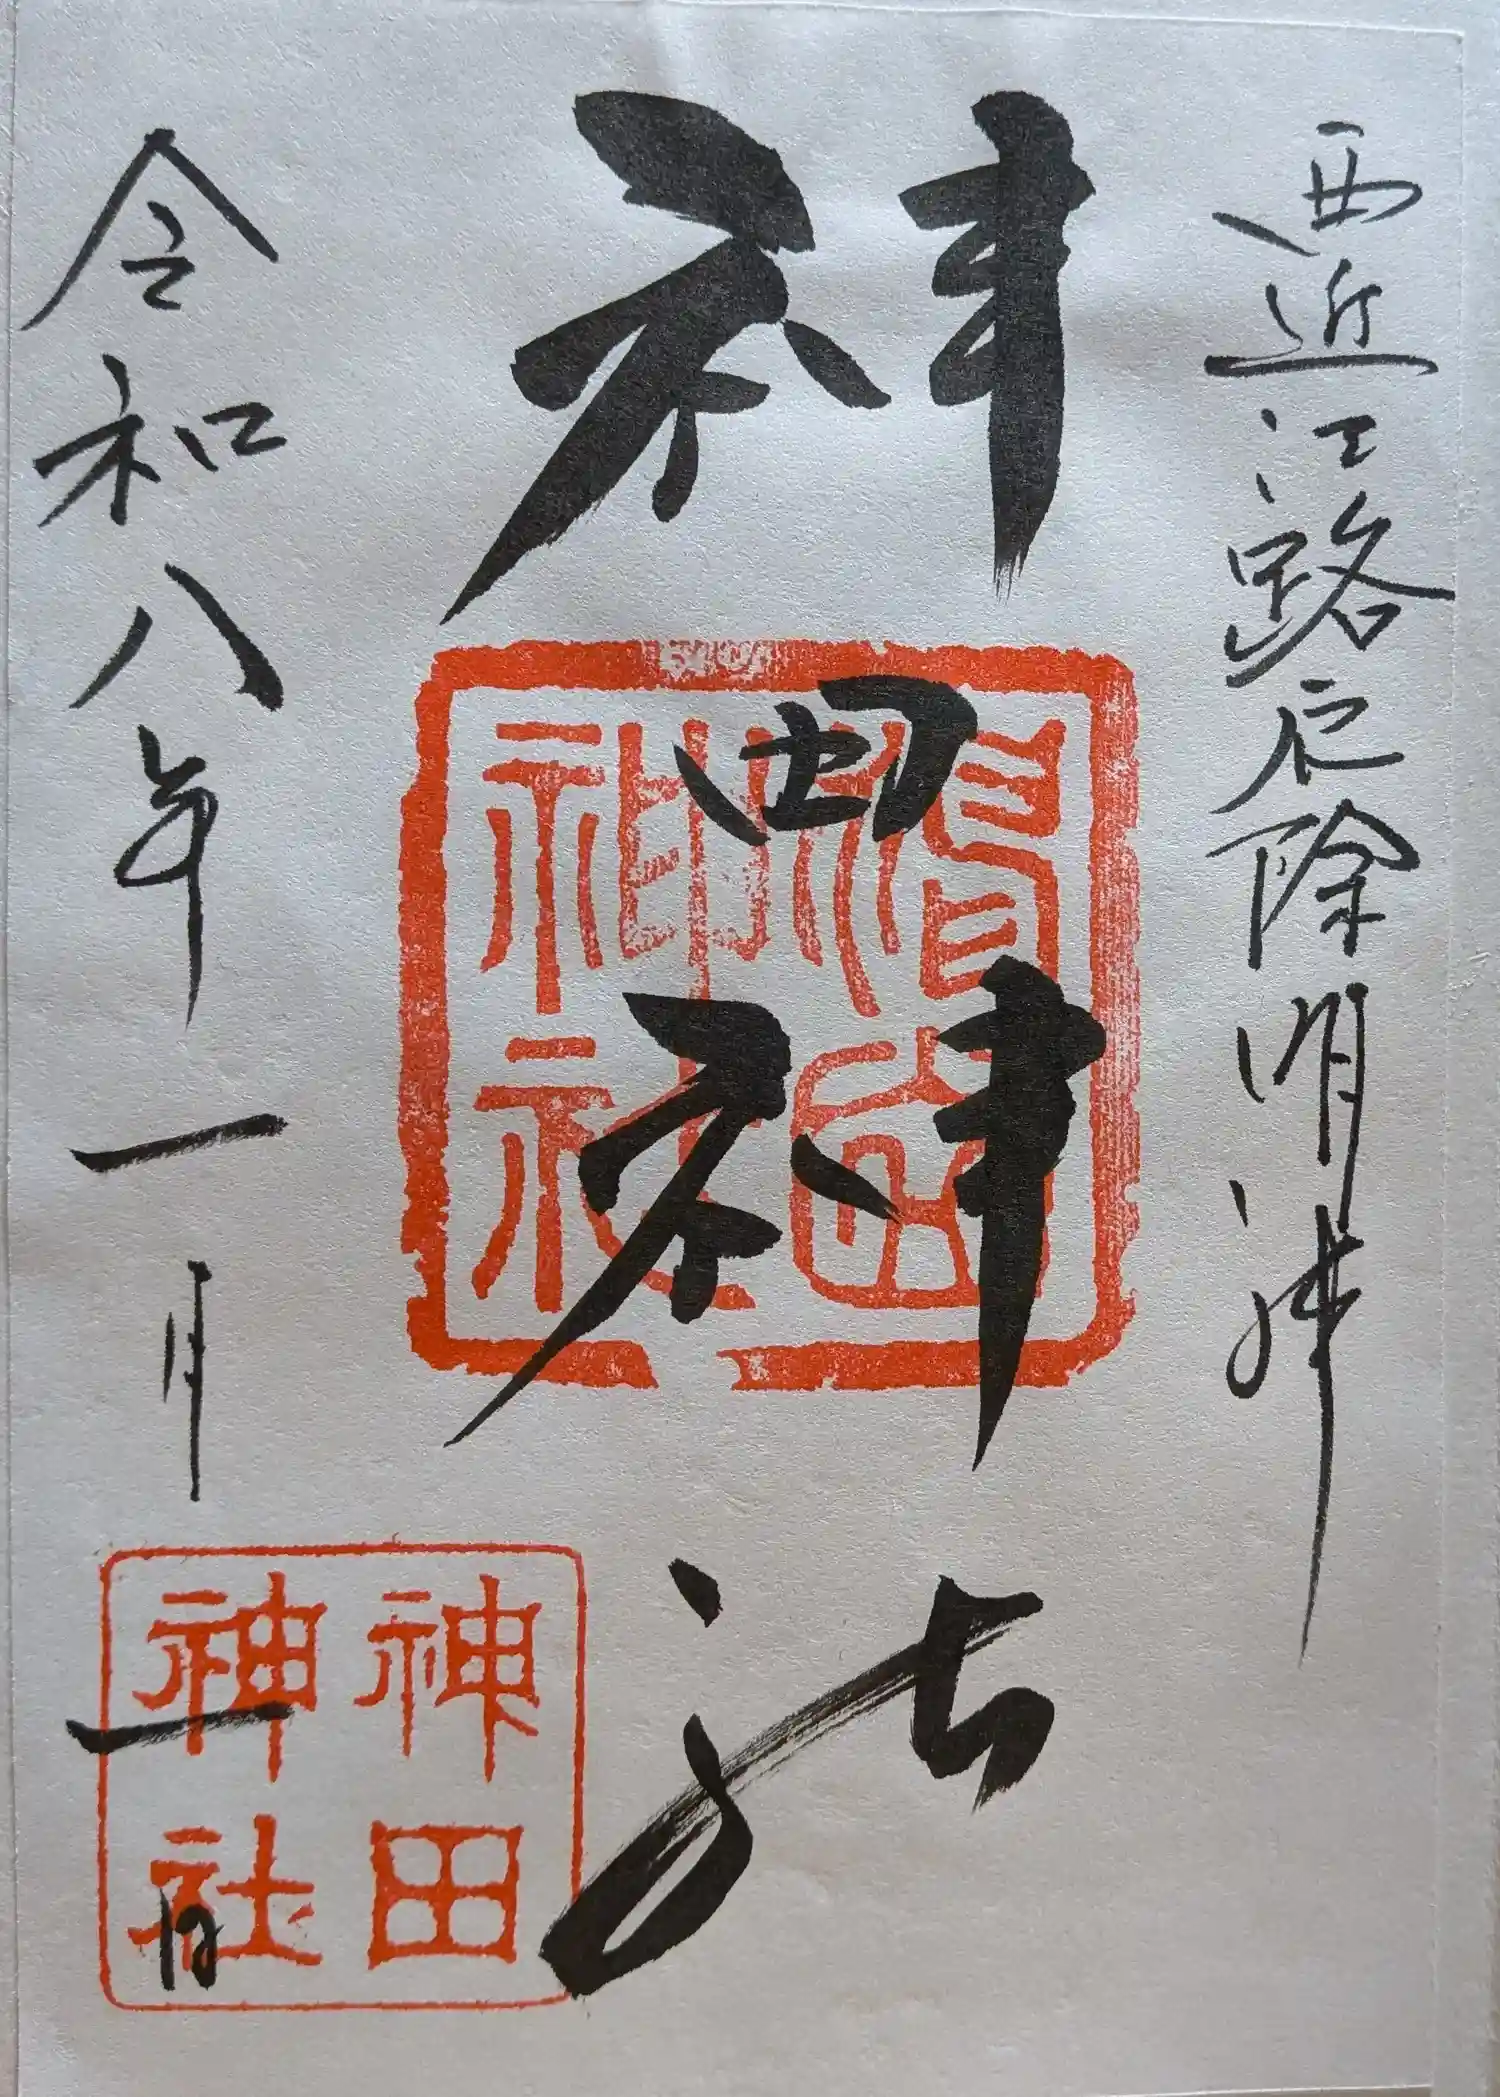 西近江路厄除明神
神田神社
令和八年一月一日
神田
神社